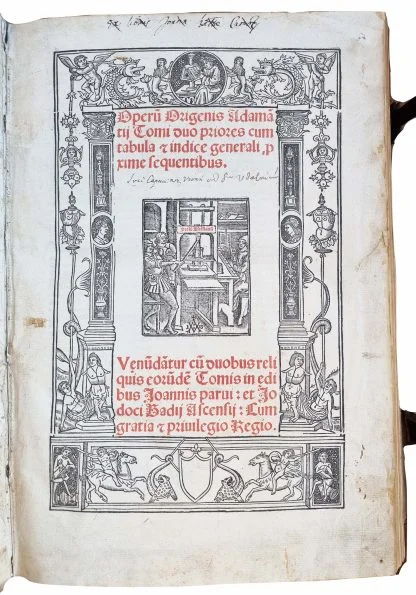 Operū Origenis Adamā
tij Tomi duo priores cum
tabula & indice generali p
xime sequentibus.
Venūdātur cū duobus reli
quis eorūdē Tomis in edi
bus Joannis parui: et Jo
doci Badij Ascensij: Cum
gratia & priuilegio Regio.